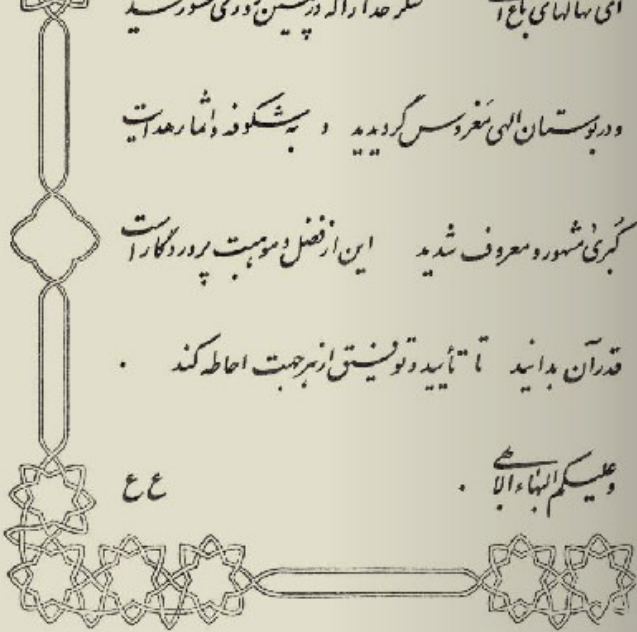 ای نهالهای باغ شکر خدا را که در چنین روزی محشور شدید
و در بوستان الهی مغروس گردیدید و به شکوفه و اثمار هدایت
کبریٰ مشهور و معروف شدید این از فضل و موهبت پروردگار است
قدر آن بدانید تا تأیید و توفیق از هر جهت احاطه کند .
و علیکم البهاء الابهیٰ . ع ع